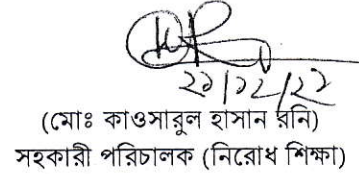 ২১/১২/২২
(মোঃ কাওসারুল হাসান রনি)
সহকারী পরিচালক (নিরোধ শিক্ষা)